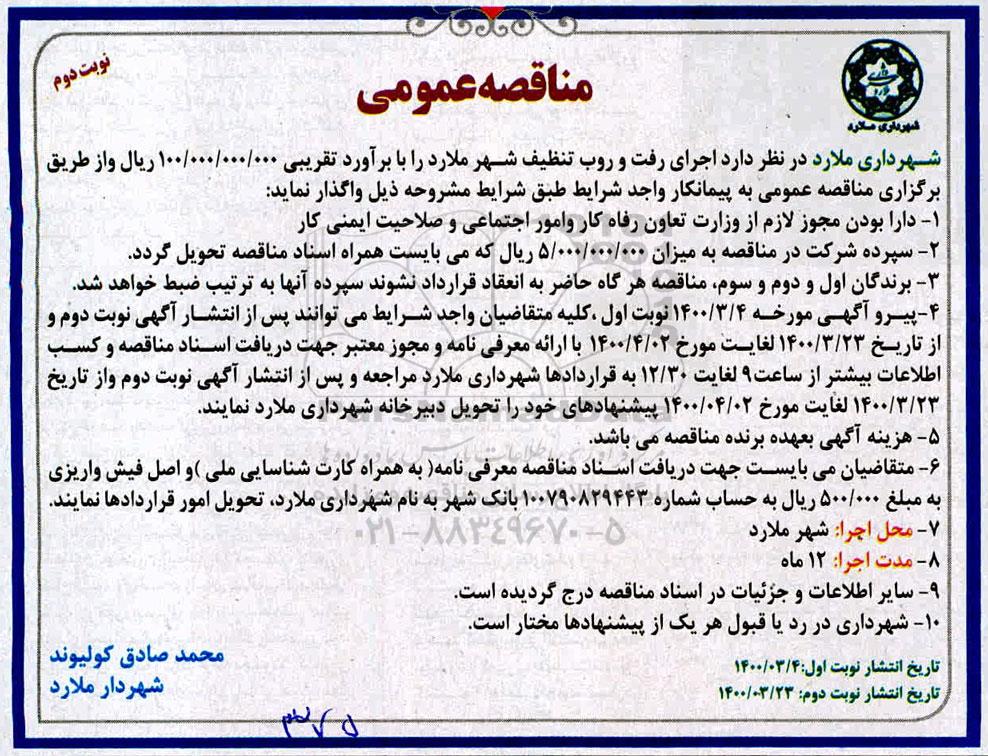 شهرداری ملارد
نوبت دوم
مناقصه عمومی
شهرداری ملارد در نظر دارد اجرای رفت و روب تنظیف شهر ملارد را با برآورد تقریبی ۱۰۰/۰۰۰/۰۰۰/۰۰۰ ریال واز طریق
برگزاری مناقصه عمومی به پیمانکار واجد شرایط طبق شرایط مشروحه ذیل واگذار نماید:
۱- دارا بودن مجوز لازم از وزارت تعاون رفاه کار وامور اجتماعی و صلاحیت ایمنی کار
۲- سپرده شرکت در مناقصه به میزان ۵/۰۰۰/۰۰۰/۰۰۰ ریال که می بایست همراه اسناد مناقصه تحویل گردد.
۳- برندگان اول و دوم و سوم، مناقصه هر گاه حاضر به انعقاد قرارداد نشوند سپرده آنها به ترتیب ضبط خواهد شد.
۴-پیرو آگهی مورخه ۱۴۰۰/۳/۴ نوبت اول ،کلیه متقاضیان واجد شرایط می توانند پس از انتشار آگهی نوبت دوم و
از تاریخ ۱۴۰۰/۳/۲۳ لغایت مورخ ۱۴۰۰/۴/۰۲ با ارائه معرفی نامه و مجوز معتبر جهت دریافت اسناد مناقصه و کسب
اطلاعات بیشتر از ساعت۹ لغایت ۱۲/۳۰ به قراردادها شهرداری ملارد مراجعه و پس از انتشار آگهی نوبت دوم واز تاریخ
۱۴۰۰/۳/۲۳ لغایت مورخ ۱۴۰۰/۰۴/۰۲ پیشنهادهای خود را تحویل دبیرخانه شهرداری ملارد نمایند.
۵- هزینه آگهی بعهده برنده مناقصه می باشد.
۶- متقاضیان می بایست جهت دریافت اسناد مناقصه معرفی نامه( به همراه کارت شناسایی ملی )و اصل فیش واریزی
به مبلغ ۵۰۰/۰۰۰ ریال به حساب شماره ۱۰۰۷۹۰۸۲۹۴۴۳ بانک شهر به نام شهرداری ملارد، تحویل امور قراردادها نمایند.
۰۲۱-۸۸۳۴۹۶۷۰-۵
۷- محل اجرا: شهر ملارد
۸- مدت اجرا: ۱۲ ماه
۹- سایر اطلاعات و جزئیات در اسناد مناقصه درج گردیده است.
۱۰- شهرداری در رد یا قبول هر یک از پیشنهادها مختار است.
محمد صادق کولیوند
شهردار ملارد
تاریخ انتشار نوبت اول:۱۴۰۰/۰۳/۴
تاریخ انتشار نوبت دوم: ۱۴۰۰/۰۳/۲۳